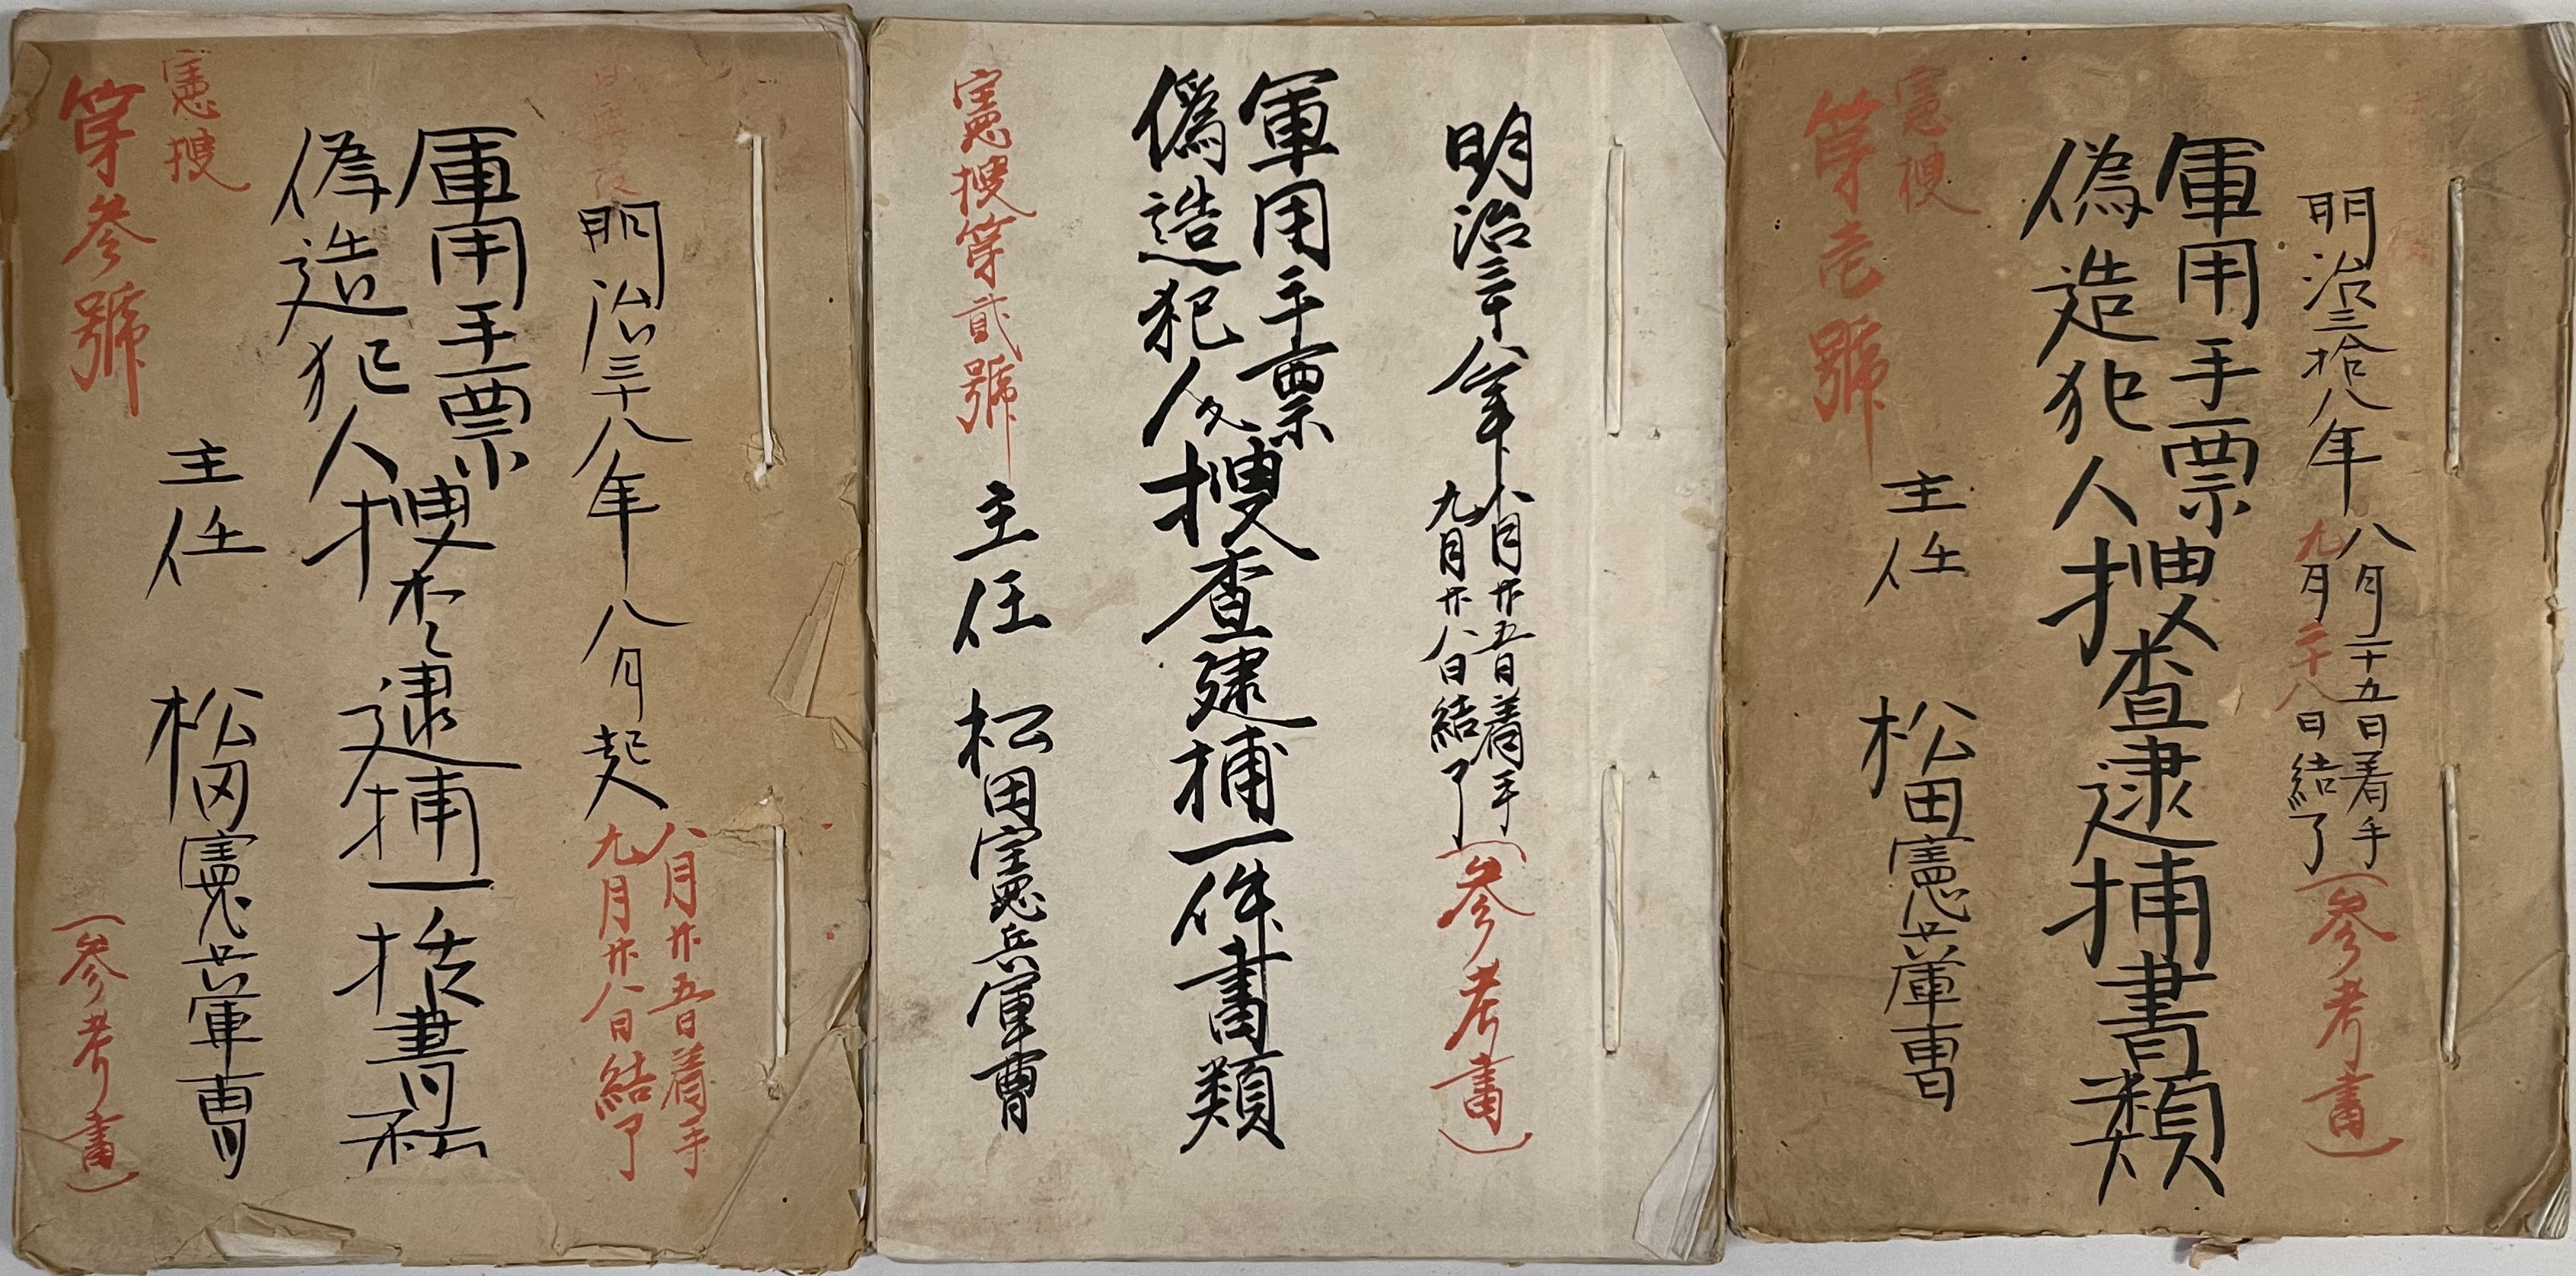 明治三拾八年
八月二十五日着手
九月二十八日結了
(参考書)
軍用手票
偽造犯人
搜査逮捕書類
憲搜
第壱號
主任 松田憲兵軍曹
明治三十八年
八月廿五日着手
九月廿八日結了
(参考書)
軍用手票
偽造犯人
搜査逮捕一件書類
憲搜第貳號
主任 松田憲兵軍曹
明治三十八年八月起
八月廿五日着手
九月廿八日結了
軍用手票
偽造犯人
搜査逮捕一括書類
憲搜
第参號
主任 松田憲兵軍曹
(参考書)